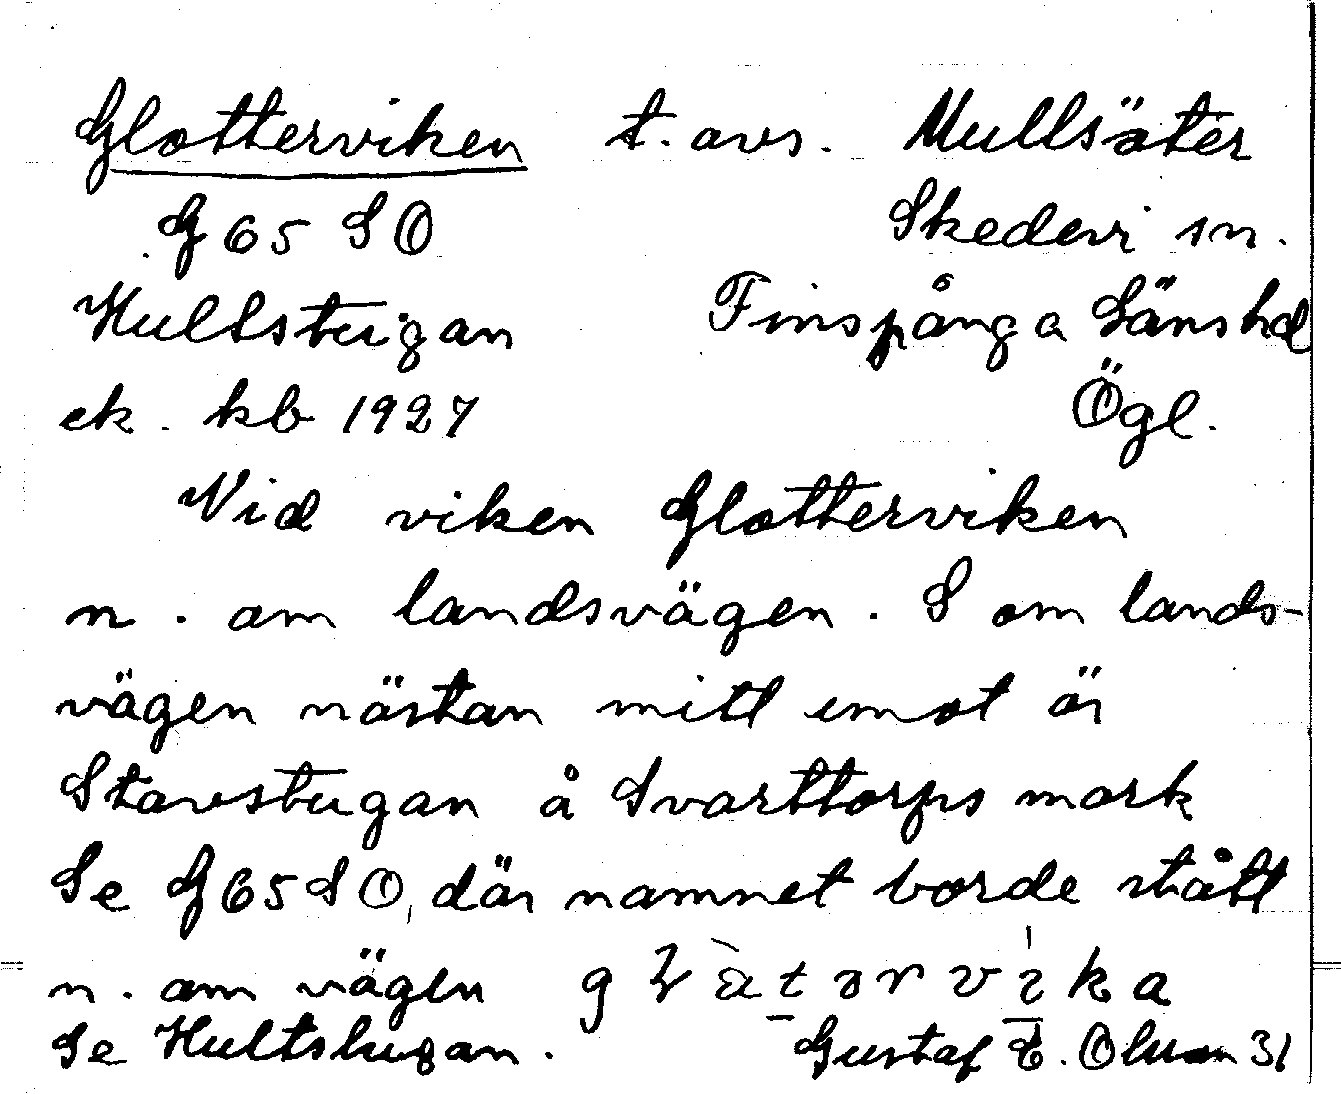 Glotterviken t. avs. Mullsäter
G 65 S O Skedevi sn.
Hultstugan Finspånga Länshd
ek. kb 1927 Ögl.
Vid viken Glotterviken
n. om landsvägen. S om lands-
vägen nästan mitt emot är
Stavstugan å Svarttorps mark
Se G 65 S O, där namnet borde stått
n. om vägen
Se Hultstugan. Gustaf E. Olsson 31